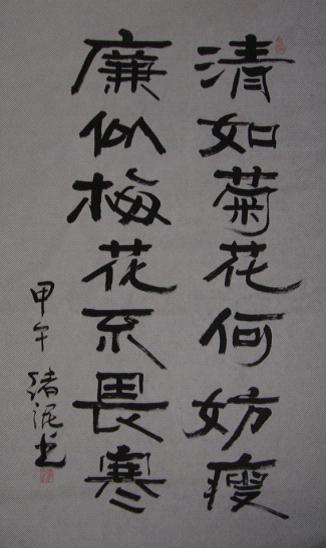 清如菊花何妨瘦
廉似梅花不畏寒
甲午 泥书